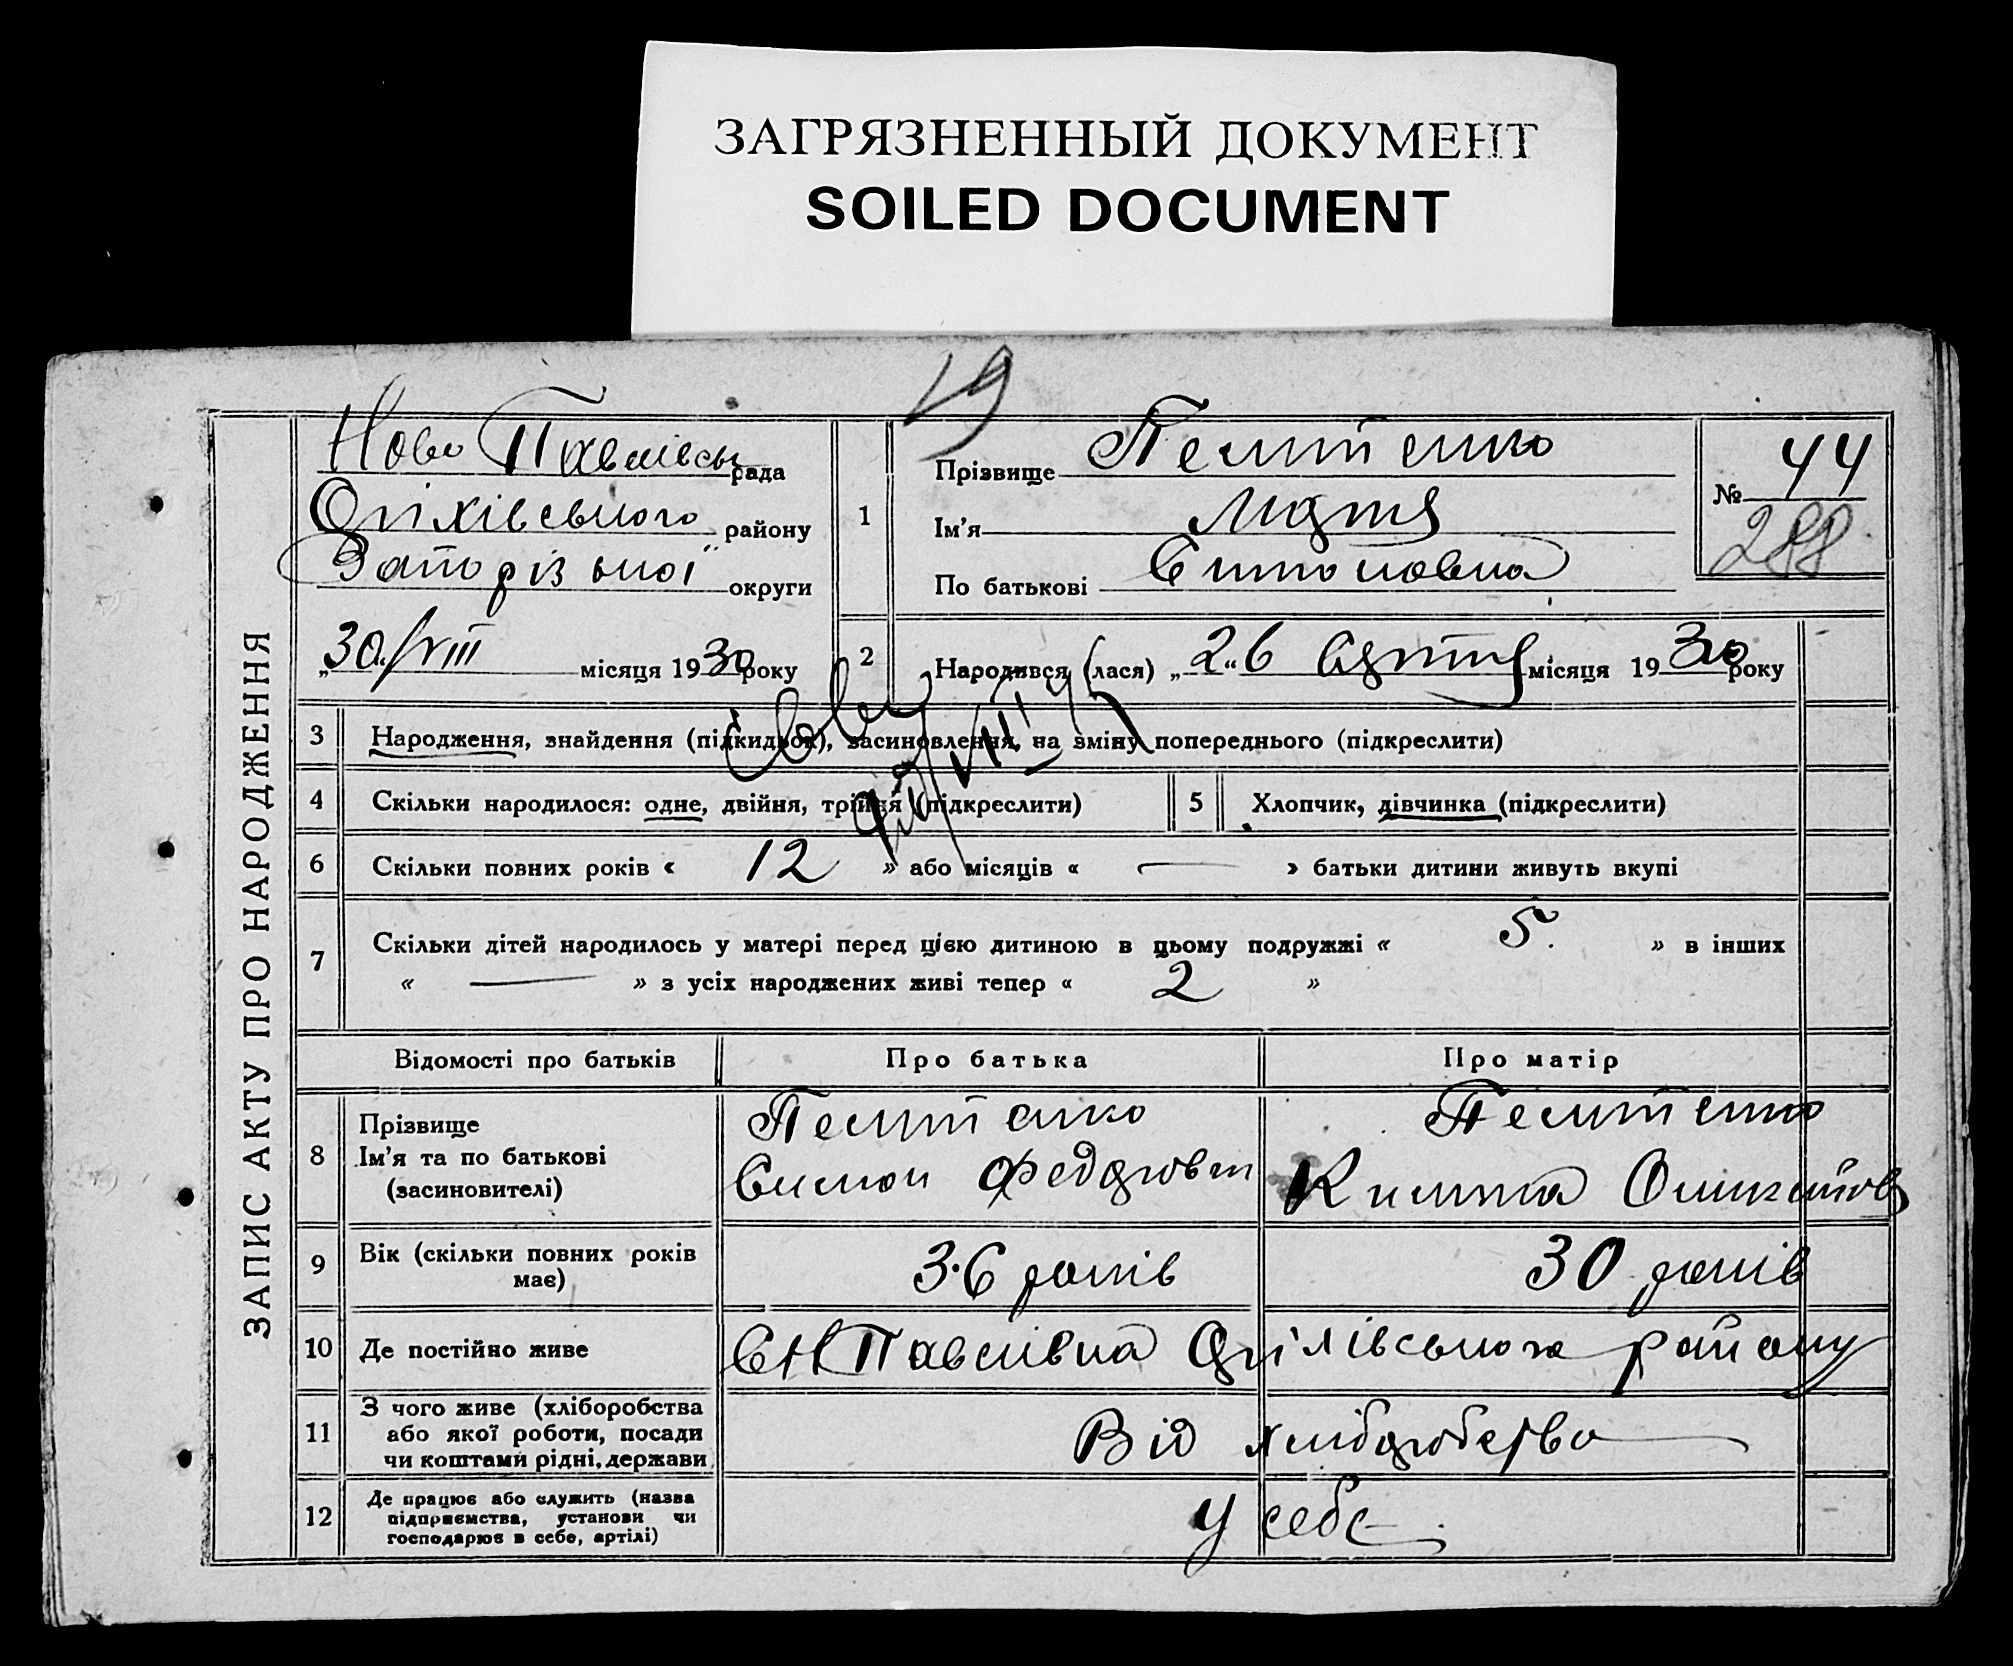 ЗАГРЯЗНЕННЫЙ ДОКУМЕНТ
SOILED DOCUMENT
19
ЗАПИС АКТУ ПРО НАРОДЖЕННЯ
Ново Павлівсь рада
Оріхівського району
Запорізької округи
„30/VIII місяця 1930 року
1
Прізвище
Ім'я Марія
По батькові Симоновна
№ 44
288
2 Народився (лася) „26 серпня місяця 1930 року
3 Народження, знайдення (підкидьок), засиновлення, на зміну попереднього (підкреслити)
4 Скільки народилося: одне, двійня, трійня (підкреслити) 5 Хлопчик, дівчинка (підкреслити)
6 Скільки повних років « 12 » або місяців « — » батьки дитини живуть вкупі
7 Скільки дітей народилось у матері перед цією дитиною в цьому подружжі « 5 » в інших
« — » з усіх народжених живі тепер « 2 »
Відомості про батьків Про батька Про матір
8 Прізвище
Ім'я та по батькові Симон Федоров
(засиновителі)
9 Вік (скільки повних років має) 36 років 30 років
10 Де постійно живе с Н Павлівка Оріхівського району
11 З чого живе (хліборобства
або якої роботи, посади Від хліборобства
чи коштами рідні, держави
12 Де працює або служить (назва
підприємства, установи чи у себе
господарює в себе, артілі)